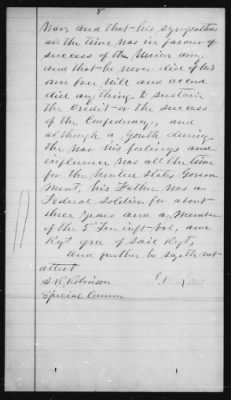 8
War, and that his sympathies
all the time was in favour of
success of the Union army
and that he never did of his
own free will and accord
did any thing to sustain
the Credit or the success
of the Confederacy, and
although a youth during
the War his feelings and
influence was all the time
for the United States Govern
ment, his Father was a
Federal Soldier for about
three years and a Member
of the 5" Ten inft. vol, and
Regt of said Regt,
And further he sayeth not
attest
S. R. Robinson
Special Comm